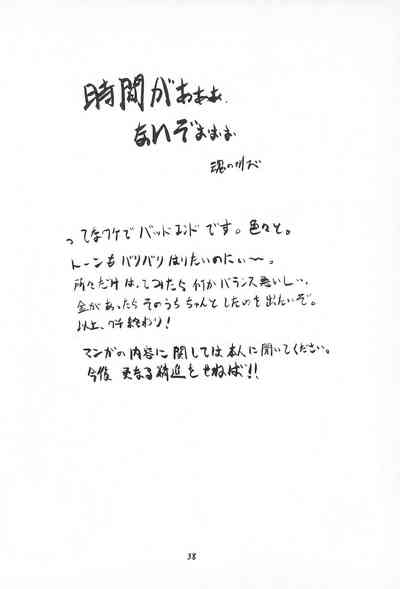 時間がぁぁぁ
ないぞぉぉぉ
魂の叫び
ってなワケでバッドエンドです。色々と。
トーンもバリバリはりたいのにぃ〜。
所々だけはってみたら何かバランス悪いしぃ、
金があったらそのうちちゃんとしたのを出したいぞ。
以上、グチ終わり!
マンガの内容に関しては本人に聞いてください。
今後更なる精進をせねば!!
38